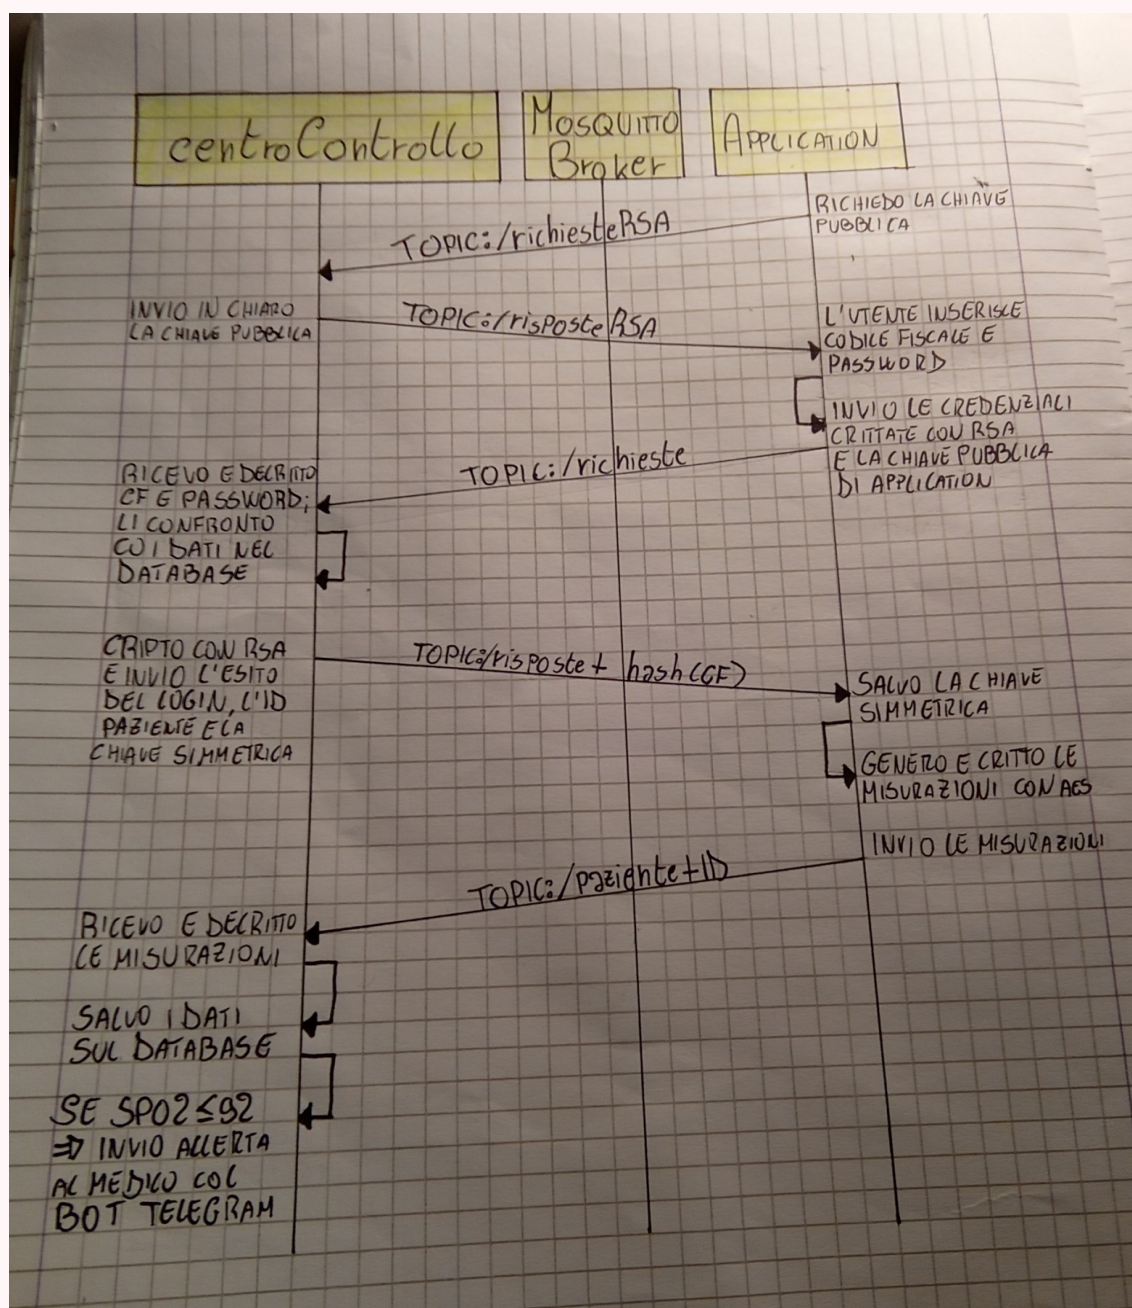 centroControllo
MOSQUITTO
Broker
APPLICATION
RICHIEDO LA CHIAVE
PUBBLICA
TOPIC:/richiesteRSA
INVIO IN CHIARO
LA CHIAVE PUBBLICA
TOPIC:/risposteRSA
L'UTENTE INSERISCE
CODICE FISCALE E
PASSWORD
INVIO LE CREDENZIALI
CRITTATE CON RSA
E LA CHIAVE PUBBLICA
DI APPLICATION
TOPIC:/richieste
RICEVO E DECRITTO
CF E PASSWORD;
LI CONFRONTO
CO I DATI NEL
DATABASE
CRIPTO CON RSA
E INVIO L'ESITO
DEL LOGIN, L'ID
PAZIENTE E LA
CHIAVE SIMMETRICA
TOPIC:/risposte+ hash(CF)
SALVO LA CHIAVE
SIMMETRICA
GENERO E CRITTO LE
MISURAZIONI CON AES
INVIO LE MISURAZIONI
TOPIC:/paziente+ID
RICEVO E DECRITTO
LE MISURAZIONI
SALVO I DATI
SUL DATABASE
SE SPO2≤92
⇒ INVIO ALLERTA
AL MEDICO COL
BOT TELEGRAM